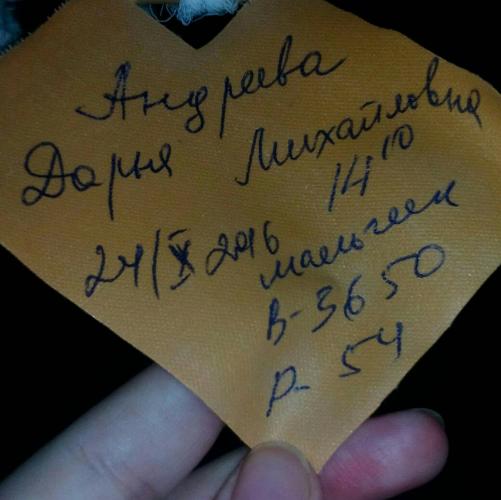 Андреева
Дарья Михайловна
14 10
24/X 2016 мальчик
В-3650
Р- 54